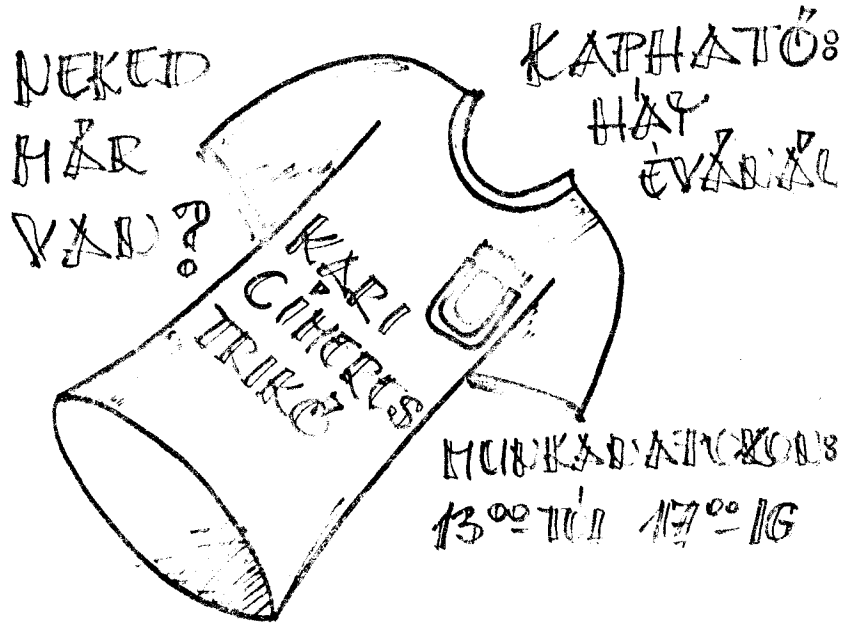 NEKED
MÁR
VAN?
KAPHATÓ:
HÁY
ÉVÁNÁL
KARI
CÍMERES
TRIKÓ
MUNKANAPOKON:
13⁰⁰ TÓL 17⁰⁰ IG